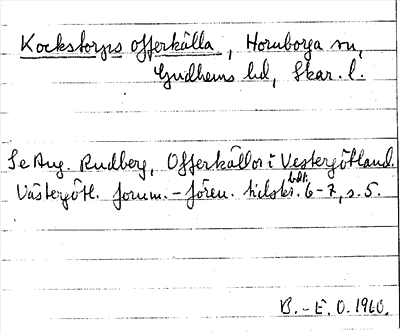 Kockstorps offerkälla, Hornborga sn,
Gudhems hd, Skar. l.
Se Aug. Rudberg, Offerkällor i Vestergötland.
Västergötl. fornm.-fören. tidskr. bd1: 6-7, s. 5.
B.-E. O. 1960.